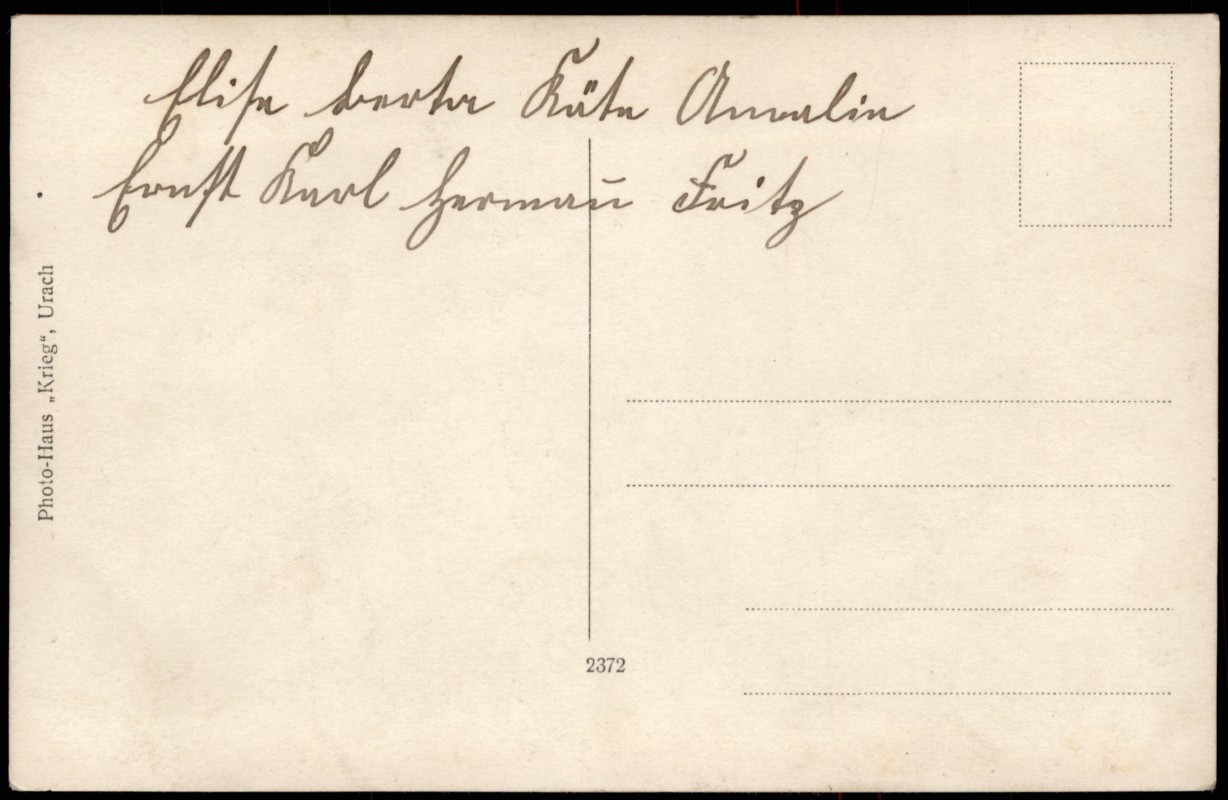 Elise Berta Käte Annalin
Ernst Karl Hermañ Fritz
Photo-Haus „Krieg“, Urach
2372